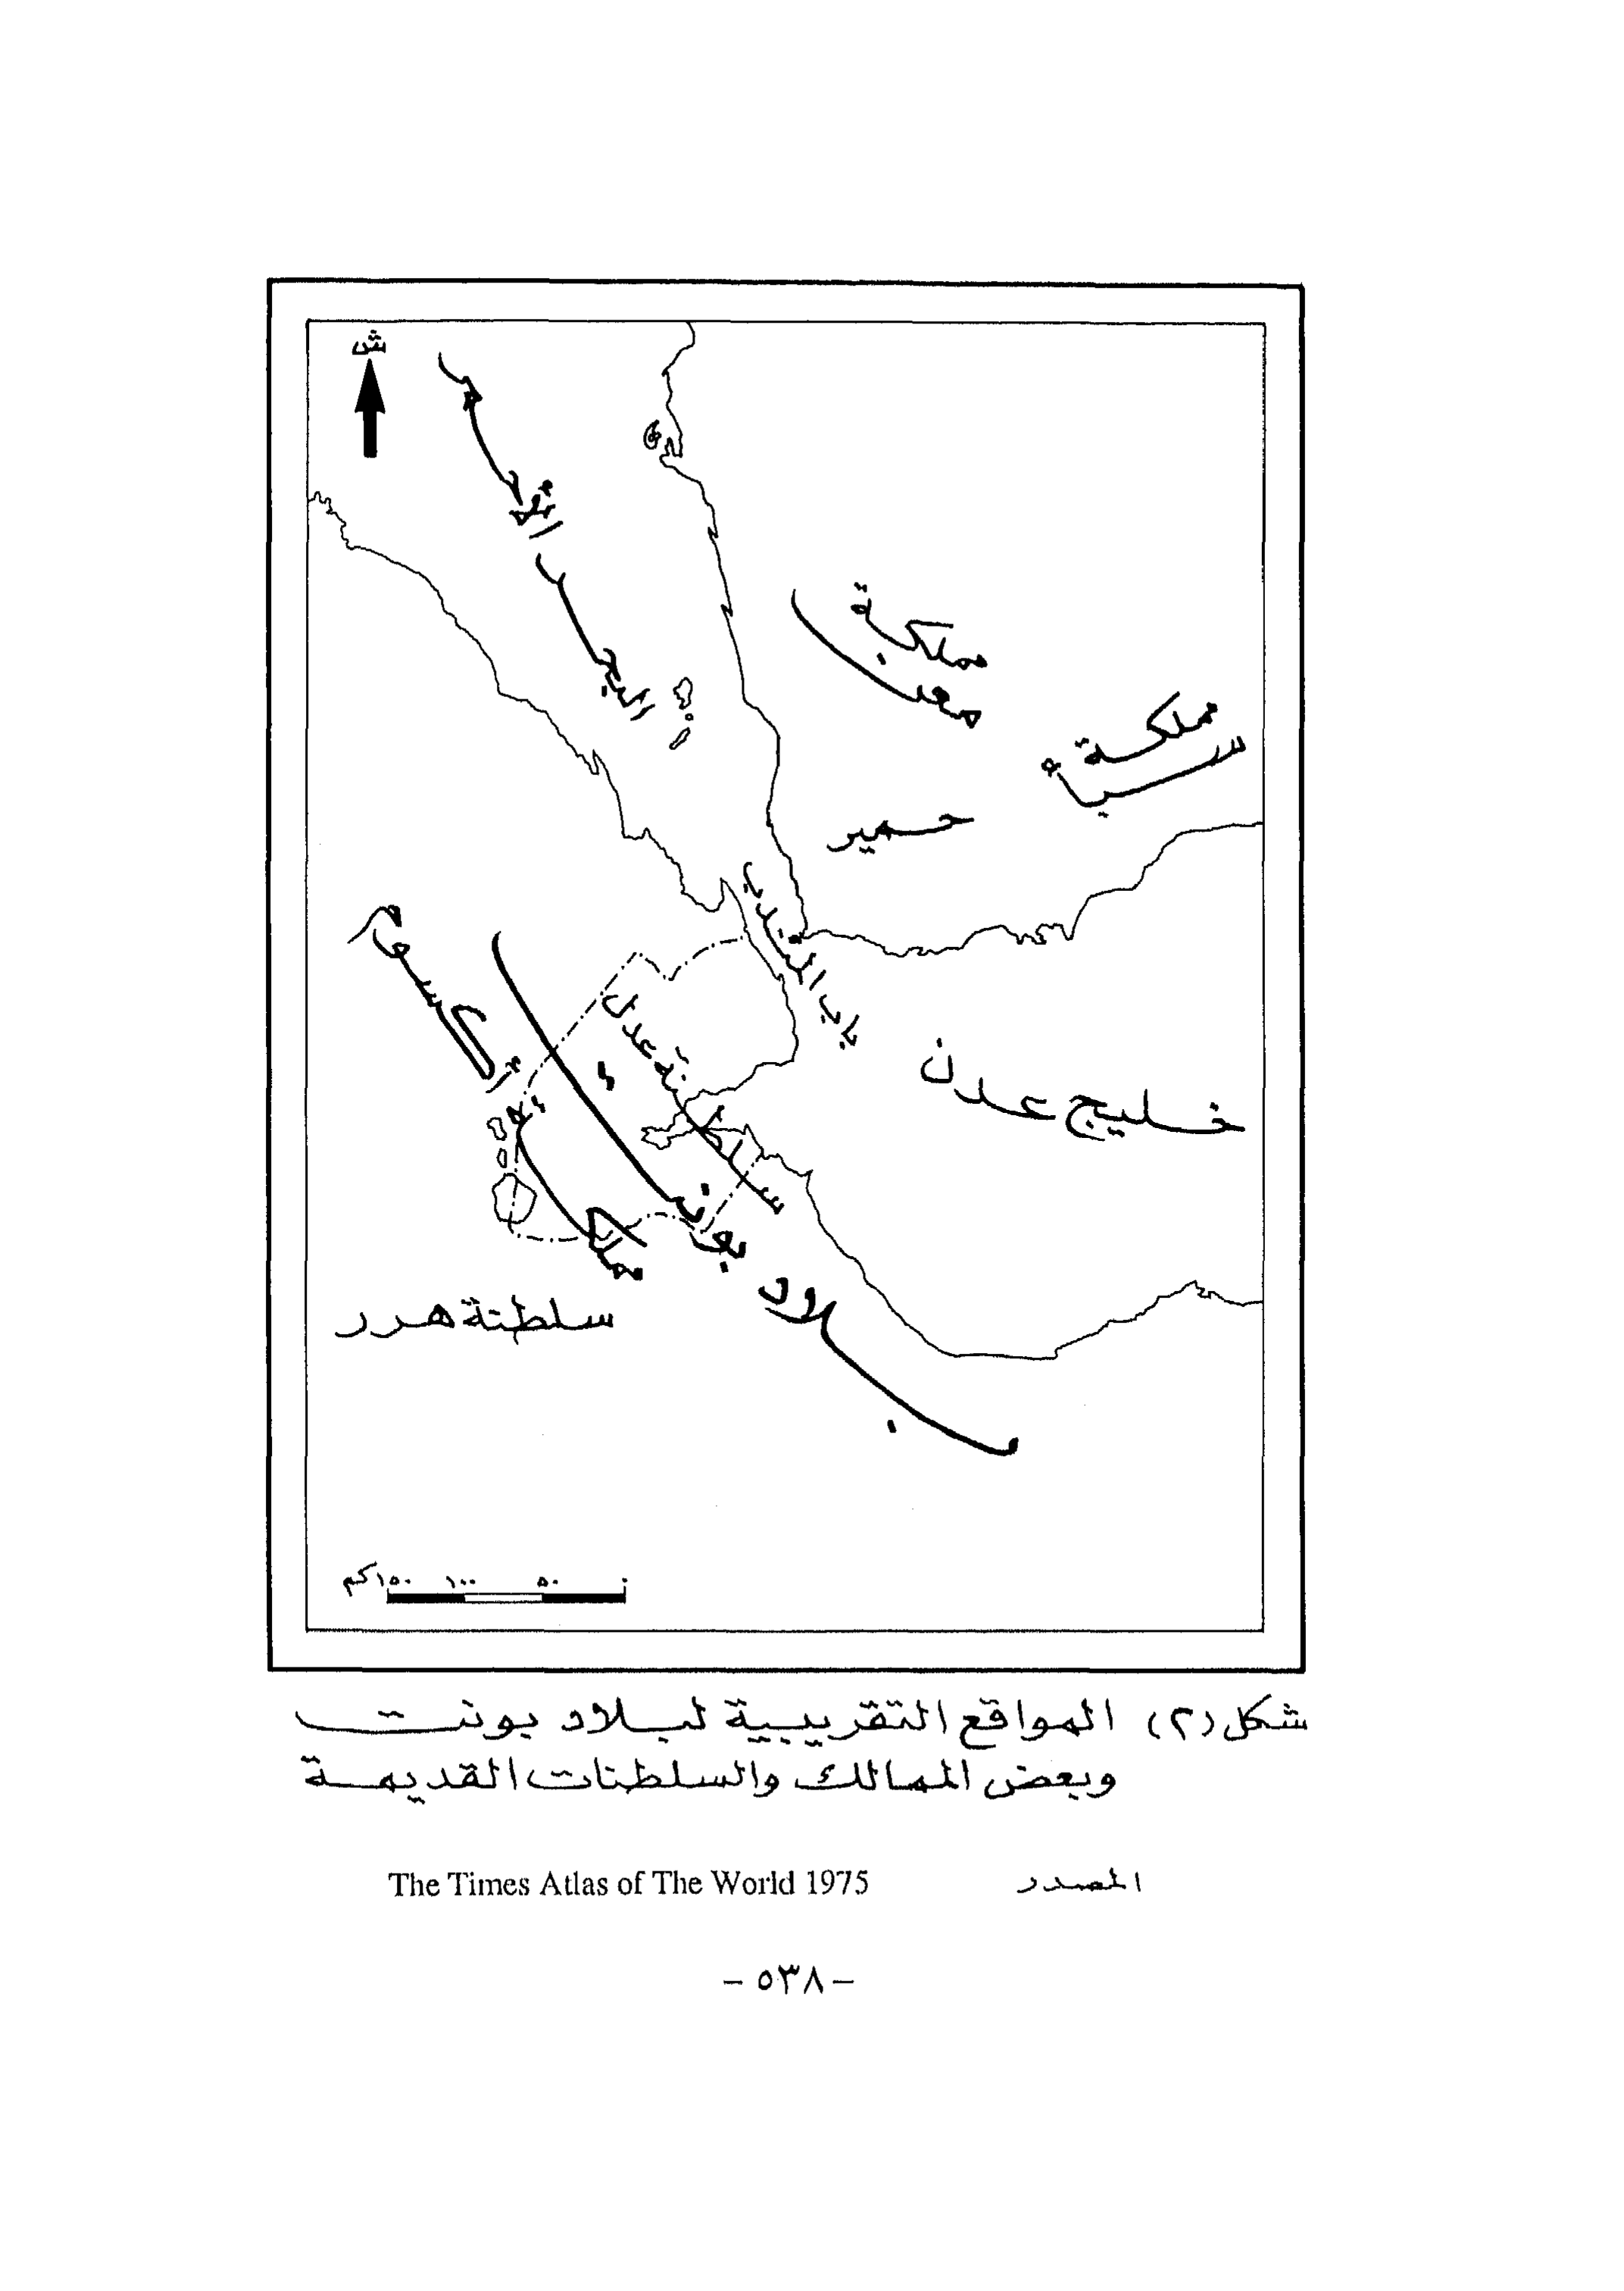 ش
البحر الأحمر
مملكة
معين
مملكة
سبأ
حمير
باب المندب
خليج عدن
سلطنة عدل
مملكة أكسوم
بلاد بونت
سلطنة هرر
٠ ٥٠ ١٠٠ ١٥٠كم
شكل (٢) المواقع التقريبية لبلاد بونت
وبعض الممالك والسلطنات القديمة
المصدر The Times Atlas of The World 1975
- ٥٣٨ -